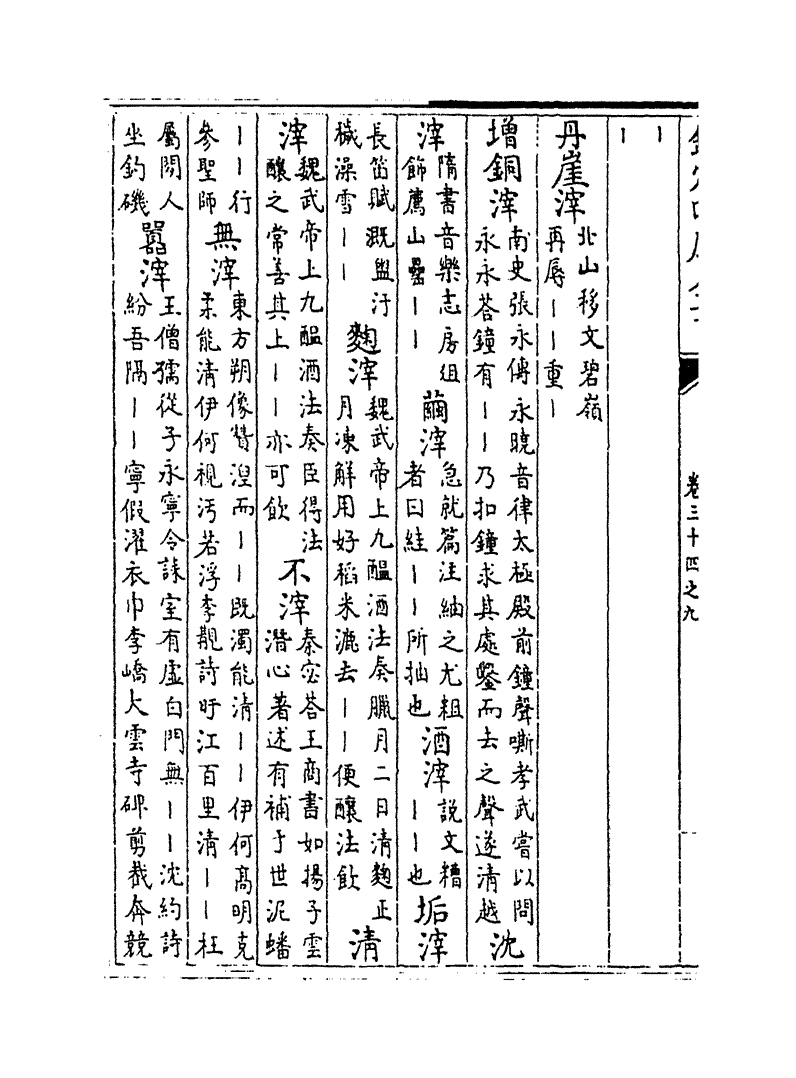 卷三十四之九
丨
丨
丹崖滓 北山移文碧嶺
再辱丨丨重丨
增銅滓 南史張永傳永曉音律太極殿前鐘聲嘶孝武嘗以問
永永荅鐘有丨丨乃扣鐘求其處鑿而去之聲遂清越 沈
滓 隋書音樂志房俎
飾鷹山罍丨丨 繭滓 急就篇注紬之尤粗
者曰絓丨丨所抽也 酒滓 說文糟
丨丨也 垢滓
長笛賦溉盥汙
穢澡雪丨丨 麴滓 魏武帝上九醖酒法奏臘月二日清麴正
月凍解用好稻米漉去丨丨便釀法飲 清
滓 魏武帝上九醖酒法奏臣得法
釀之常善其上丨丨亦可飲 不滓 秦宓荅王商書如揚子雲
潛心著述有補于世泥蟠
丨丨行
參聖師 無滓 東方朔像贊涅而丨丨既濁能清丨丨伊何高明克
柔能清伊何視汚若浮李覯詩旴江百里清丨丨枉
屬閒人
坐釣磯 囂滓 王僧孺從子永寧令誄室有虛白門無丨丨沈約詩
紛吾隔丨丨寧假濯衣巾李嶠大雲寺碑剪截奔競